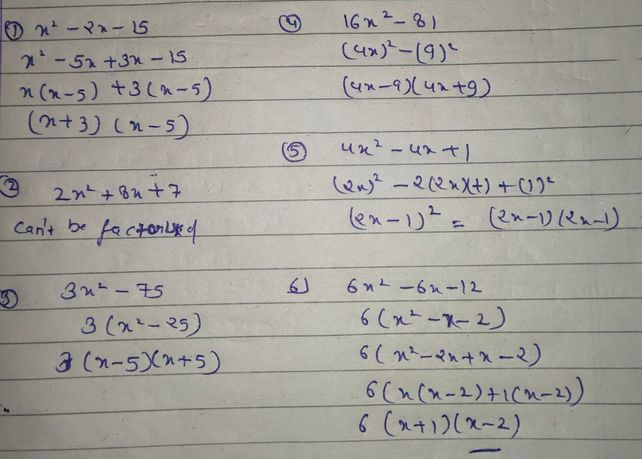 ① x² - 2x - 15
x² - 5x + 3x - 15
x(x-5) + 3(x-5)
(x+3) (x-5)
② 2x² + 8x + 7
can't be factorised
③ 3x² - 75
3(x² - 25)
3 (x-5)(x+5)
④ 16x² - 81
(4x)² - (9)²
(4x-9)(4x+9)
⑤ 4x² - 4x + 1
(2x)² - 2(2x)(1) + (1)²
(2x-1)² = (2x-1)(2x-1)
6) 6x² - 6x - 12
6(x² - x - 2)
6(x² - 2x + x - 2)
6(x(x-2) + 1(x-2))
6 (x+1)(x-2)